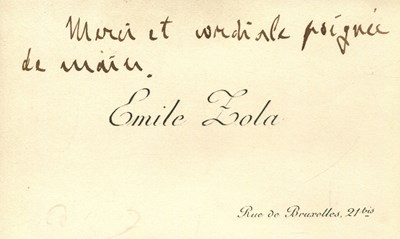 Merci et cordiale poignée
de main.
Emile Zola
Rue de Bruxelles, 21 bis